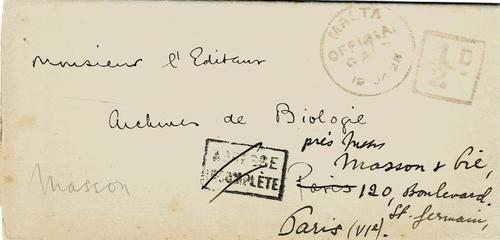 MALTA
OFFICIAL
PAID
19 JA 28
1/2 D.
Monsieur l'Editeur
Archives de Biologie
près
Masson & Cie,
Paris 120, Boulevard
St. Germain,
Paris (VIe).
ADRESSE
INCOMPLÈTE
Masson